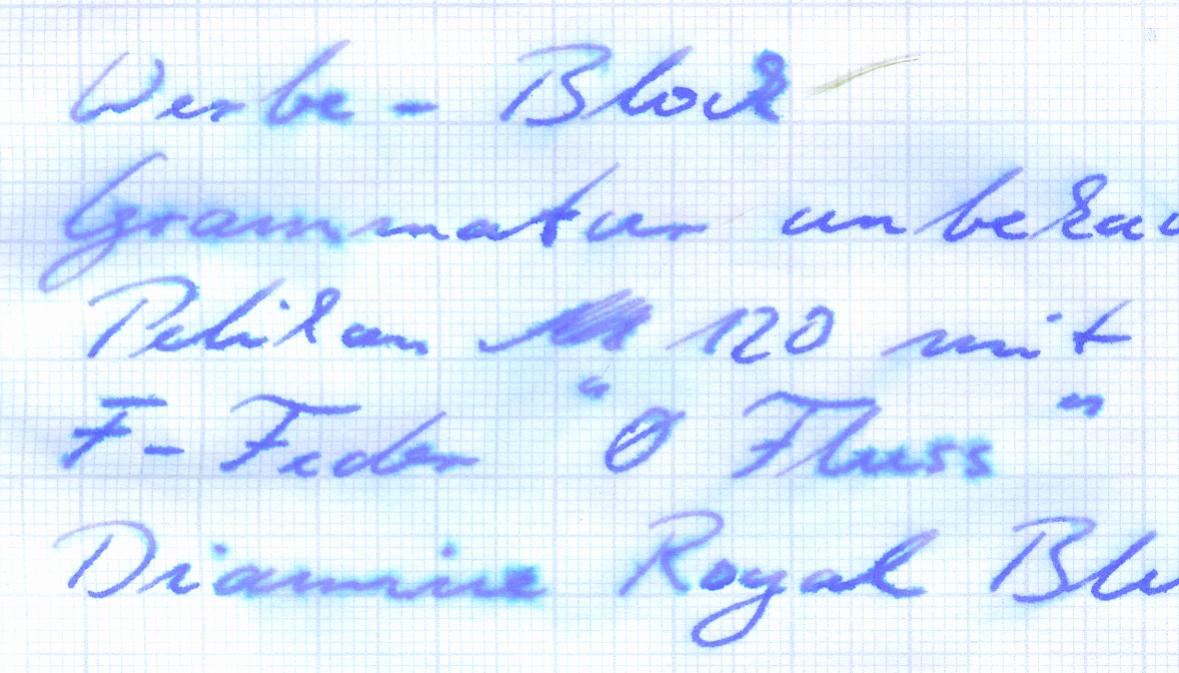 Werbe - Block
Grammatur unbekan
Pelikan M 120 mit
F - Feder "Ø Fluss"
Diamine Royal Blu